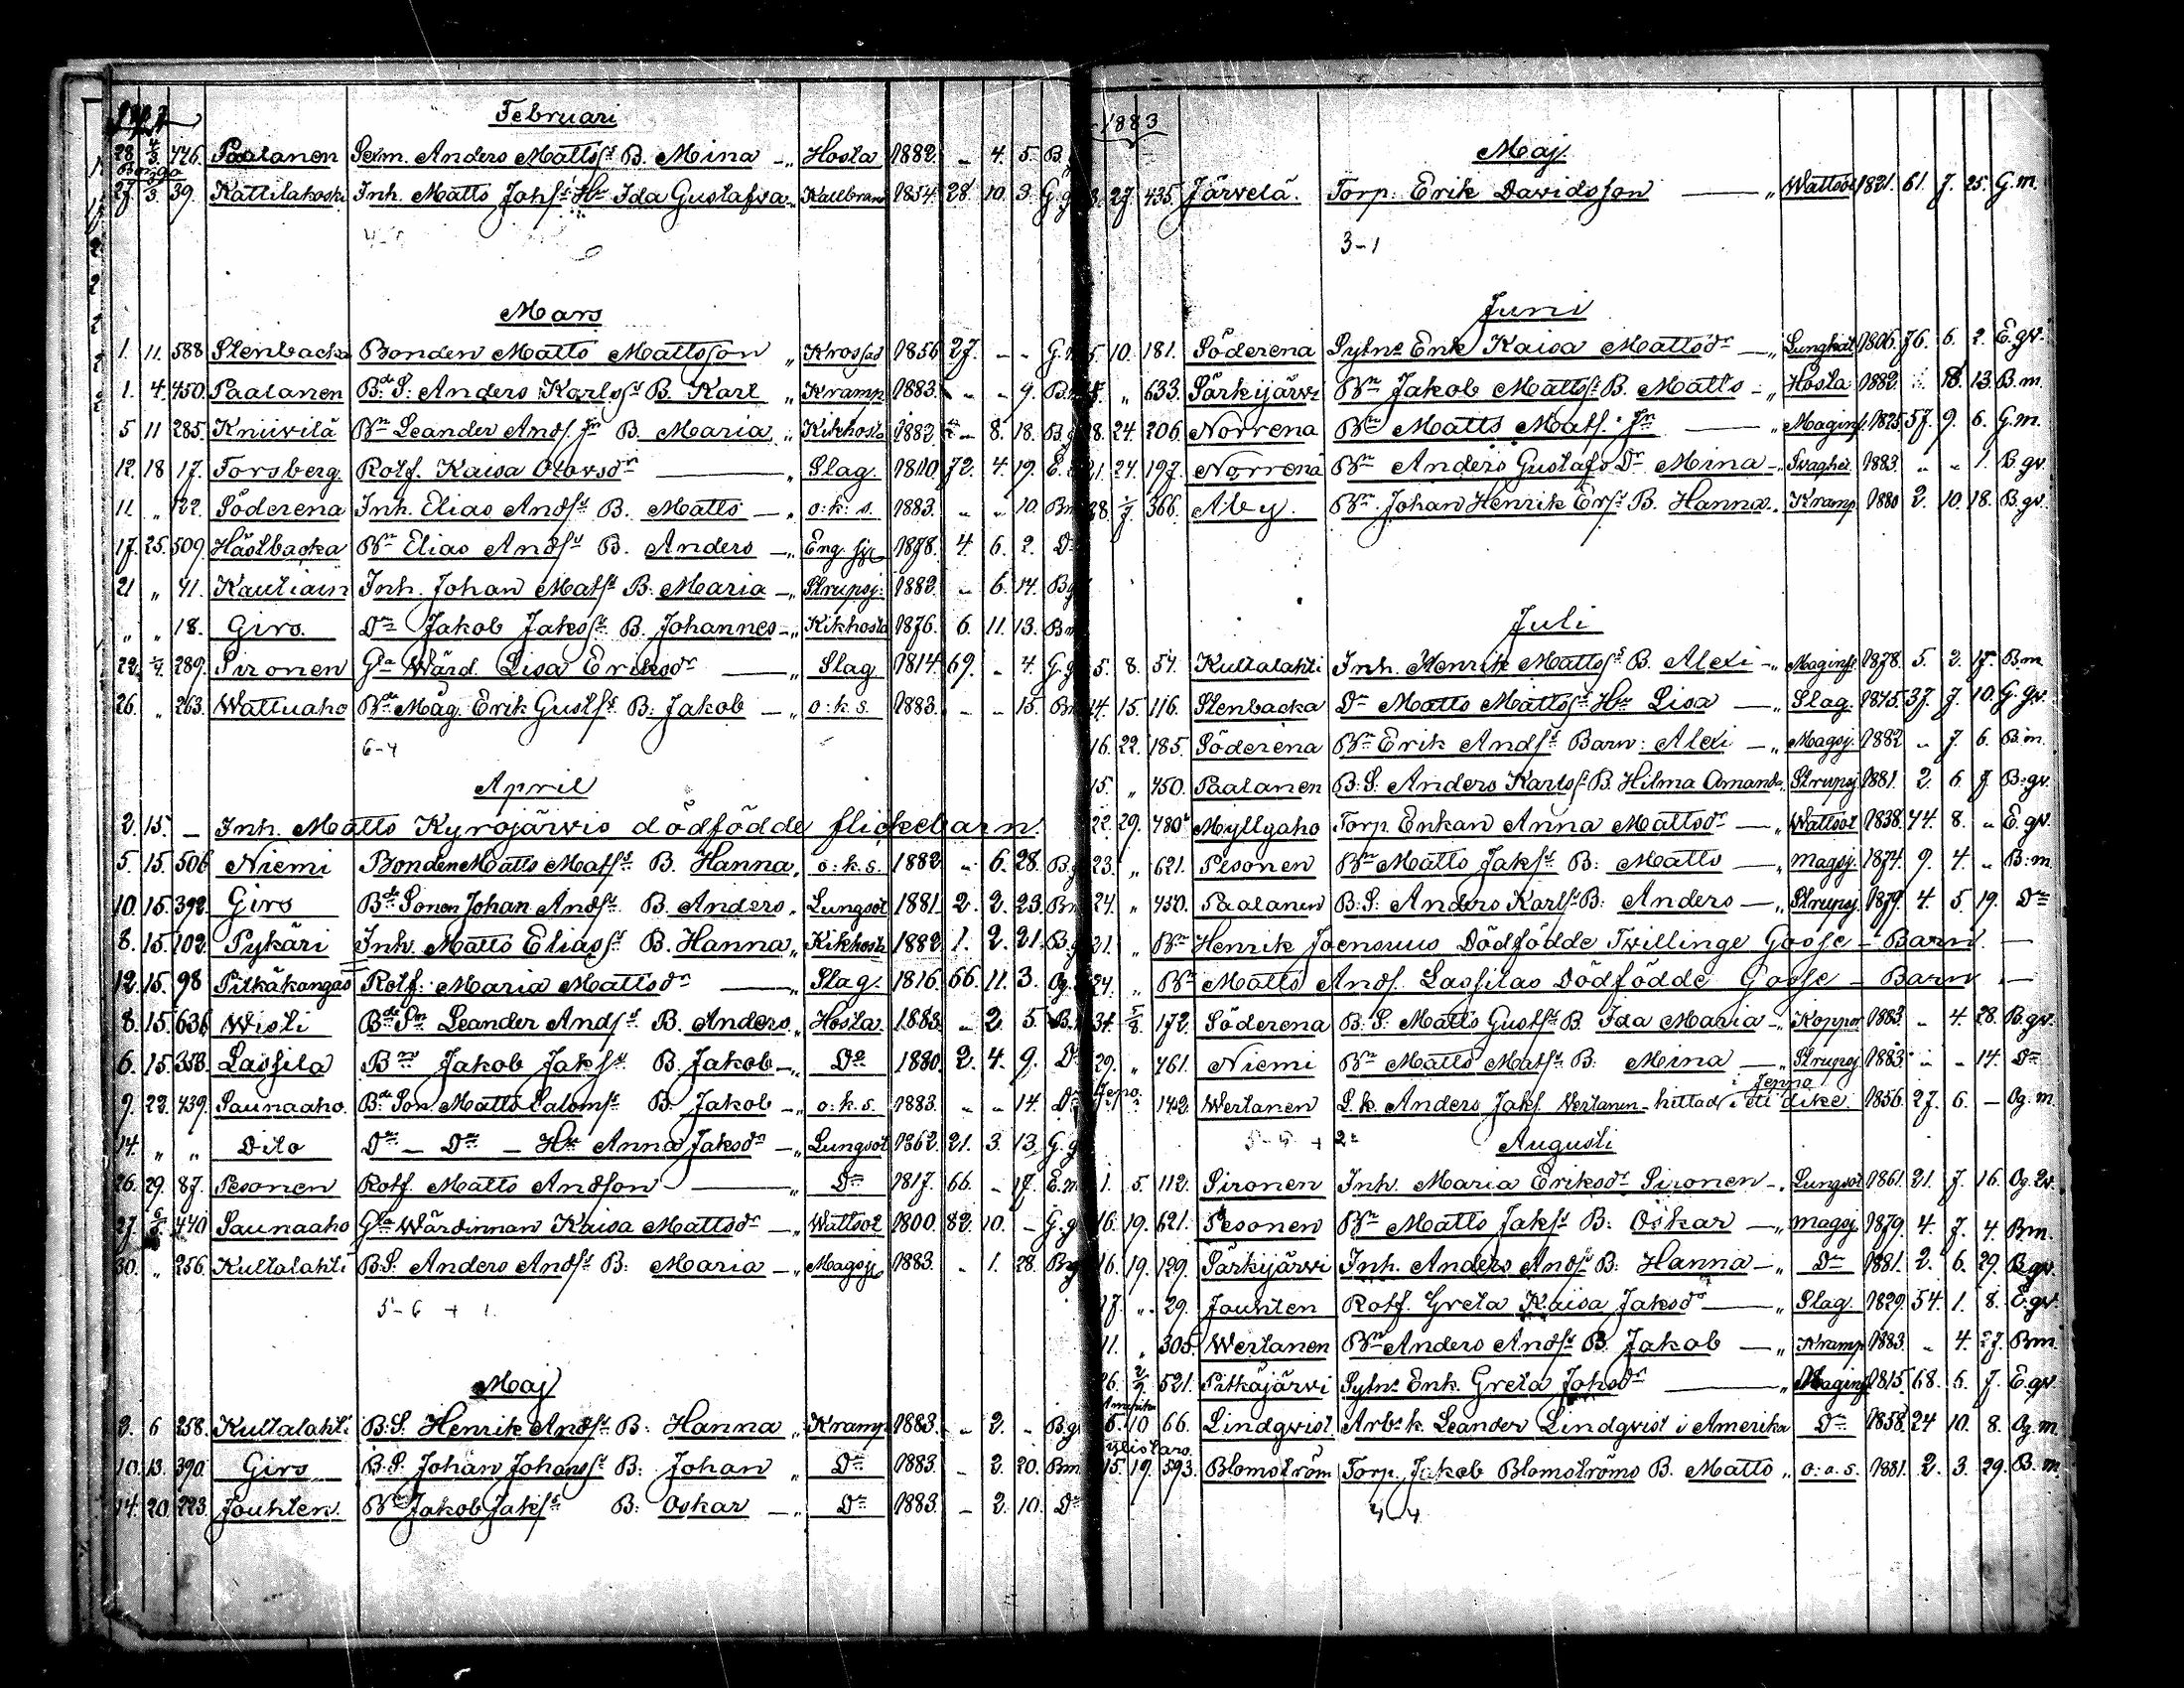 Februari
28. 4/3. 426. Paalanen Sexm. Anders Mattss. B. Mina -„ Hosta 1882. - 4. 5. B.
Borgo
27. 3. 39. Kattilakoski Inh. Matts Johss. Hu Ida Gustafva „ Kallbrand 1854. 28. 10. 3. G.g
Mars
1. 11. 588 Stenbacka Bonden Matts Mattsson „ Krossad 1856 27. - - G.
1. 4. 450. Paalanen Bde S. Anders Karlss. B. Karl „ Kramp 1883. - - 9. B.
5 11 285. Kniivilä Bn Leander Ands. Jr B. Maria „ Kikhosta 1882. - 8. 18. B.g
12. 18 17. Forsberg. Rotf. Kaisa Olovsdr „ Slag. 1810. 72. 4. 19. E.
11. „ 122. Söderena Inh. Elias Andss. B. Matts - „ o: k: s. 1883. „ „ 10. Bm
17. 25. 509. Hästbacka Bn Elias Andss. B. Anders -„ Eng. sj. 1878. 4. 6. 2. Do
21 „ 41. Kautiain Inh. Johan Matss. B. Maria -„ Strupsj. 1882. - 6. 14. Bg
„ „ 18. Girs. Dn Jakob Jakss. B. Johannes -„ Kikhosta 1876. 6. 11. 13. Bm
22. 1/4. 289. Sironen Gla Wärd. Lisa Eriksdr „ Slag 1814. 69. - 4. G.g
26. „ 263. Wattuaho Bde Mäg. Erik Gustss. B: Jakob -„ o: k. s. 1883. - - 15. Bm
6-4
April
2. 15. - Inh. Matts Kyrojärvis dödfödde flickebarn.
5. 15. 506 Niemi Bonden Matts Matss. B. Hanna „ o: k. s. 1882 „ 6. 28. B.g
10. 15. 392. Girs Bde Sonen Johan Andss. B. Anders „ Lungsot 1881. 2. 2. 23. Bm
8. 15. 102. Pykäri Inh. Matts Eliass. B. Hanna „ Kikhosta 1882. 1. 2. 21. B.g
12. 15. 98 Pitkäkangas Rotf. Maria Mattsdr „ Slag. 1816. 66. 11. 3. Og.
8. 15. 636 Wisti Bde Sn Leander Andss. B. Anders „ Hosta 1883. „ 2. 5. B.
6. 15. 353. Lassila Bn Jakob Jakss. B. Jakob -„ Do 1880. 2. 4. 9. Do
9. 22. 439. Saunaaho. Bde Son. Matts Salomss. B. Jakob -„ o: k. s. 1883. „ „ 14. Do
14. „ „ Dito Dn - Dn - Hu Anna Jaksdr -„ Lungsot 1862. 21. 3. 13. G.g
26. 29. 87. Pesonen Rotf. Matts Andsson „ Do 1817. 66. - 17. E.m
27. 6/5. 440. Saunaaho Gla Wärdinnan Kaisa Mattsdr -„ Wattsot 1800. 82. 10. - G.g
30. „ 256. Kultalahti B.S. Anders Andss. B: Maria -„ Magsj. 1883. . 1. 28. Bg
5-6 + 1.
Maj
2. 6 258. Kultalahti B.S. Henrik Andss. B: Hanna „ Kramp 1883. - 2. - B.g
10. 13. 390. Girs B.S. Johan Johanss. B: Johan „ Do 1883. - 2. 20. Bm
14. 20. 223. Jouhten. Bn Jakob Jakss. B: Oskar -„ Do 1883. - 2. 10. Do
1883
Maj.
3. 27. 435. Järvelä. Torp. Erik Davidsson „ Wattsot 1821. 61. 7. 25. G.m.
3-1
Juni
5. 10. 181. Söderena Sytns Enk Kaisa Mattsdr -„ Lungkat 1806. 76. 6. 2. E.gv.
„ 633. Särkijärvi Bn Jakob Mattss. B. Matts -„ Hosta 1882. 13. B.m.
28. 24. 206. Norrena Bn Matts Mats. Jn „ Maginf. 1825. 57. 9. 6. G.m.
21. 24. 197. Norrena Bn Anders Gustafs Dr Mina -„ Svaghet 1883. „ „ 1. B.gv.
28. 1/7. 366. Aby. Bn Johan Henrik Erss. B. Hanna „ Kramp. 1880 2. 10. 18. B.gv.
Juli
5. 8. 54. Kultalahti Inh. Henrik Mattss. B. Alexi -„ Maginf. 1878. 5. 2. 17. Bm
14. 15. 116. Stenbacka Dn Matts Mattss. Hu Lisa „ Slag. 1845. 37. 7. 10. G.gv.
16. 22. 185. Söderena Bn Erik Andss. Barn: Alexi -„ Magsj. 1882 „ 7. 6. B.m.
15. „ 450. Paalanen B.S. Anders Karlss. B. Hilma Amanda „ Strupsj. 1881. 2. 6. 7 B:gv.
22. 29. 480. Myllyaho Torp. Enkan Anna Mattsdr -„ Wattsot 1838. 44. 8. „ E.gv.
23. „ 621. Pesonen Bn Matts Jakss. B: Matts -„ magsj. 1874. 9. 4. „ B:m.
24. „ 450. Paalanen B.S. Anders Karlss. B: Anders -„ Strupsj. 1879. 4. 5. 19. Do
21. „ Bn Henrik Joensuus Dödfödde Twillinge Gosse - Barn. -
24. „ Bn Matts Ands. Lassilas Dödfödde Gosse - Barn -
31. 5/8. 172. Söderena B.S. Matts Gustss. B. Ida Maria -„ Koppor 1883. „ 4. 28. B.gv.
29. „ 461. Niemi Bn Matts Matss. B: Mina -„ Strupsj. 1883. „ - 14. Do
Jepo. 142. Wertanen L.k. Anders Jaks. Wertanen - hittad i ett dike i Jeppo. 1856. 27. 6. - Og.m.
5-5 + 2
Augusti
1. 5. 112. Sironen Inh. Maria Eriksdr Sironen -„ Lungsot 1861. 21. 7. 16. Og.2v.
16. 19. 621. Pesonen Bn Matts Jakss. B: Oskar -„ magsj. 1879. 4. 7. 4. Bm.
16. 19. 129. Särkijärvi Inh. Anders Andss. B: Hanna -„ Do 1881. 2. 6. 29. Bgv.
17. „ 29. Jouhten Rotf. Greta Kaisa Jaksdr -„ Slag. 1829. 54. 1. 8. E.gv.
11. „ 305. Wertanen Bn Anders Andss. B. Jakob -„ Kramp 1883. „ 4. 27. Bm.
26. 2/9. 521. Pitkäjärvi Sytns Enk. Greta Johsdr „ Maginf. 1815. 68. 5. 7. E.gv.
Amerika
5. 10 66. Lindqvist Arb.k. Leander Lindqvist i Amerika Do 1858. 24 10. 8. Og.m.
Ylistaro.
15. 19. 593. Blomström Torp. Jakob Blomströms B. Matts „ o: a. s. 1881. 2. 3. 29. B.m.
4-4